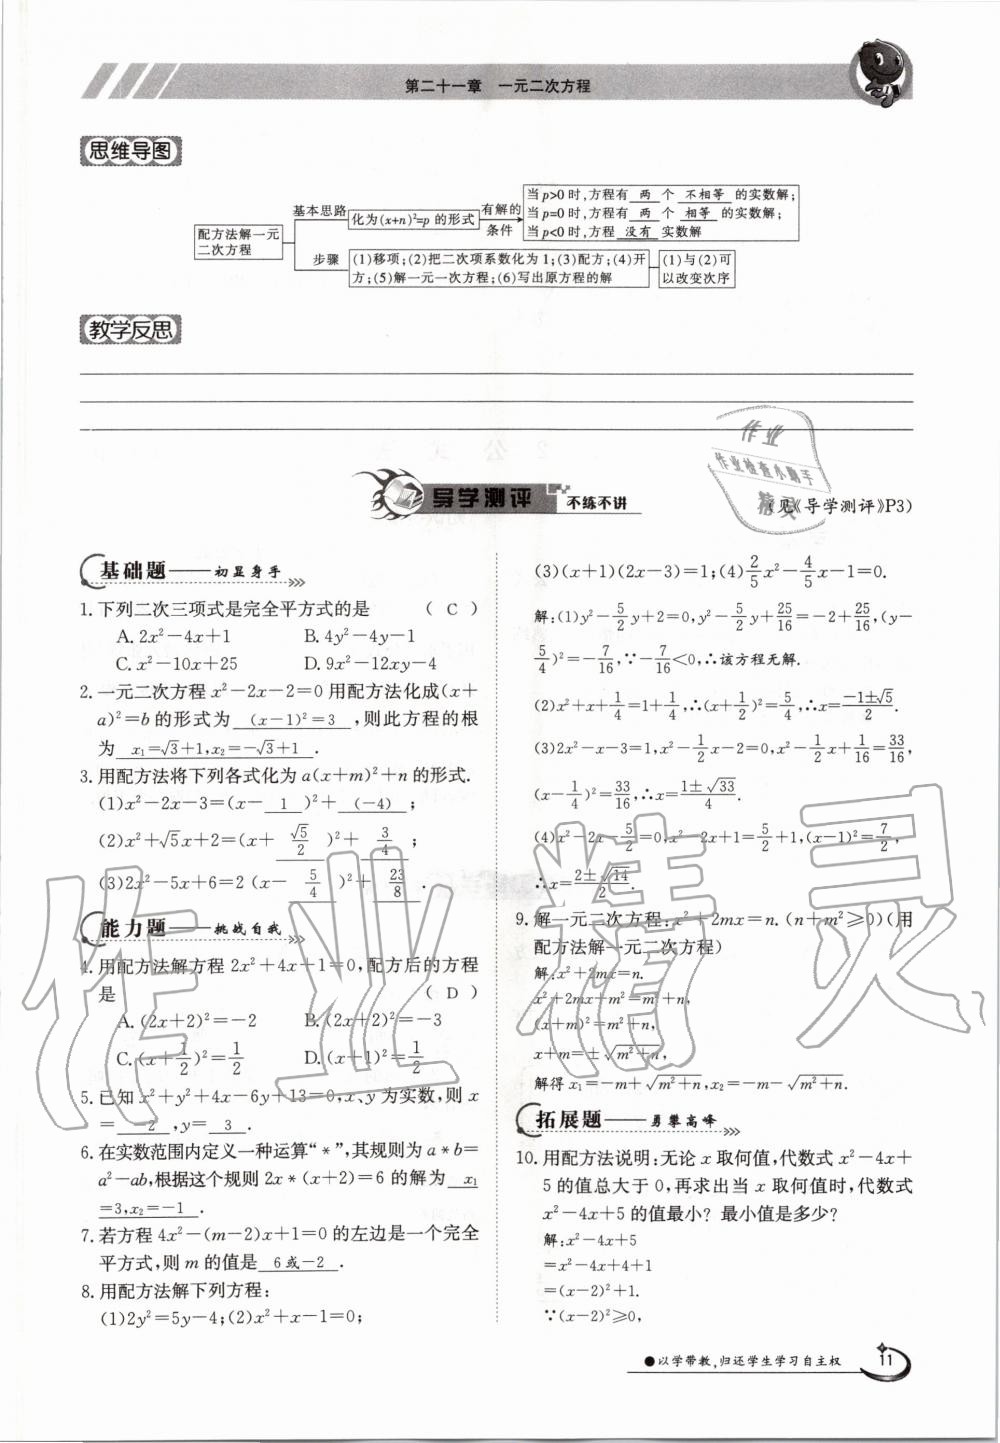 第二十一章 一元二次方程
思维导图
配方法解一元二次方程
基本思路
化为(x+n)²=p 的形式
有解的条件
当p>0时,方程有 两 个 不相等 的实数解;
当p=0时,方程有 两 个 相等 的实数解;
当p<0时,方程 没有 实数解
步骤
(1)移项;(2)把二次项系数化为1;(3)配方;(4)开
方;(5)解一元一次方程;(6)写出原方程的解
(1)与(2)可
以改变次序
教学反思
导学测评 不练不讲
(见《导学测评》P3)
基础题——初显身手
1.下列二次三项式是完全平方式的是 ( C )
A.2x²-4x+1 B.4y²-4y-1
C.x²-10x+25 D.9x²-12xy-4
2.一元二次方程 x²-2x-2=0 用配方法化成(x+
a)²=b 的形式为 (x-1)²=3 ,则此方程的根
为 x₁=√3+1,x₂=-√3+1 .
3.用配方法将下列各式化为 a(x+m)²+n 的形式.
(1)x²-2x-3=(x- 1 )²+ (-4) ;
(2)x²+√5x+2=(x+ √5/2 )²+ 3/4 ;
(3)2x²-5x+6=2 (x- 5/4 )²+ 23/8 .
能力题——挑战自我
4.用配方法解方程 2x²+4x+1=0,配方后的方程
是 ( D )
A.(2x+2)²=-2 B.(2x+2)²=-3
C.(x+1/2)²=1/2 D.(x+1)²=1/2
5.已知 x²+y²+4x-6y+13=0,x、y 为实数,则 x
= -2 ,y= 3 .
6.在实数范围内定义一种运算“*”,其规则为 a*b=
a²-ab,根据这个规则 2x*(x+2)=6 的解为 x₁
=3,x₂=-1 .
7.若方程 4x²-(m-2)x+1=0 的左边是一个完全
平方式,则 m 的值是 6或-2 .
8.用配方法解下列方程:
(1)2y²=5y-4;(2)x²+x-1=0;
(3)(x+1)(2x-3)=1;(4)2/5x²-4/5x-1=0.
解:(1)y²-5/2y+2=0,y²-5/2y+25/16=-2+25/16,(y-
5/4)²=-7/16,∵-7/16<0,∴该方程无解.
(2)x²+x+1/4=1+1/4,∴(x+1/2)²=5/4,∴x=(-1±√5)/2.
(3)2x²-x-3=1,x²-1/2x-2=0,x²-1/2x+1/16=33/16,
(x-1/4)²=33/16,∴x=(1±√33)/4.
(4)x²-2x-5/2=0,x²-2x+1=5/2+1,(x-1)²=7/2,
∴x=(2±√14)/2.
9.解一元二次方程:x²+2mx=n.(n+m²≥0)(用
配方法解一元二次方程)
解:x²+2mx=n.
x²+2mx+m²=m²+n,
(x+m)²=m²+n,
x+m=±√(m²+n),
解得 x₁=-m+√(m²+n),x₂=-m-√(m²+n).
拓展题——勇攀高峰
10.用配方法说明:无论 x 取何值,代数式 x²-4x+
5 的值总大于 0,再求出当 x 取何值时,代数式
x²-4x+5 的值最小?最小值是多少?
解:x²-4x+5
=x²-4x+4+1
=(x-2)²+1.
∵(x-2)²≥0,
●以学带教,归还学生学习自主权
11
作业
作业检查小助手
精灵
作业精灵